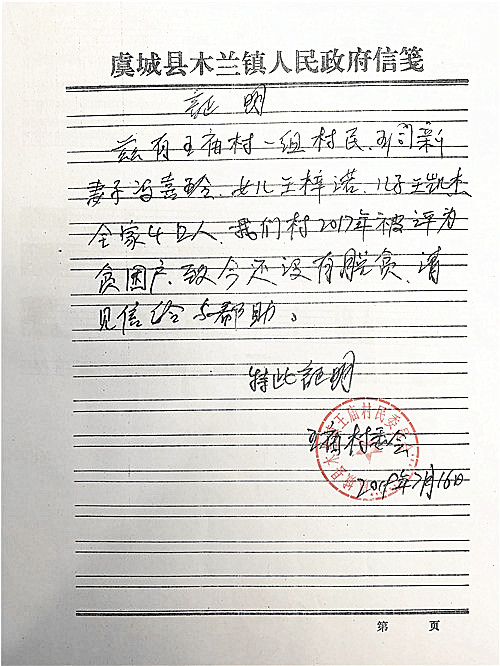 虞城县木兰镇人民政府信笺
証明
兹有王庙村一组村民，王司新
妻子冯喜玲、女儿王梓诺、儿子王凯杰
全家4口人、我们村2017年被评为
贫困户、致今还没有脱贫、请
见信给与邦助。
特此証明
王庙村委会
2019年7月16日
王庙村民委员会
第 页